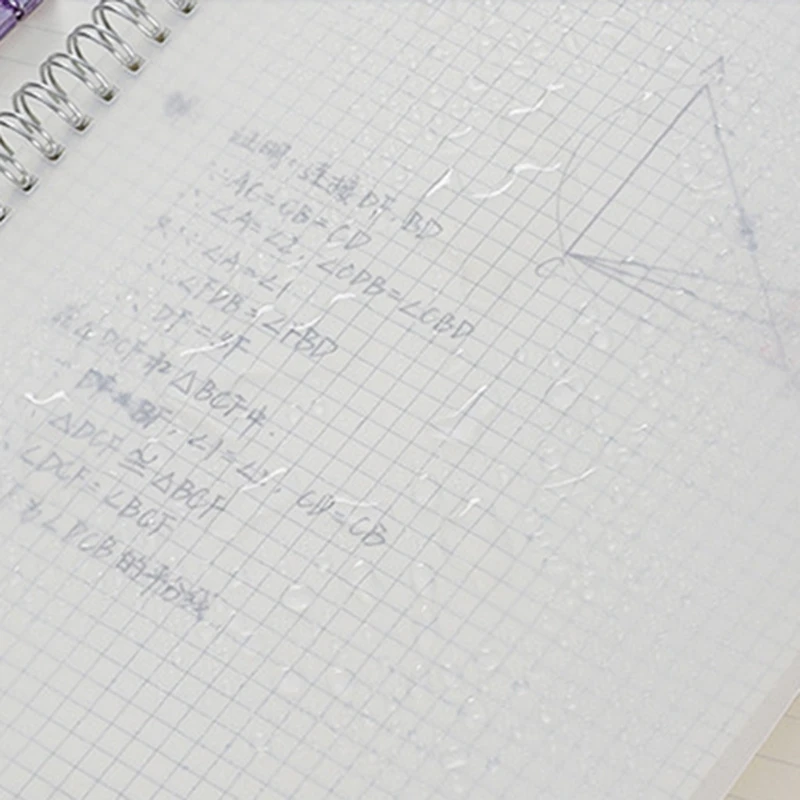 证明：连接DF、BD
∵AC=CB=CD
∠A=∠2，∠CDB=∠CBD
又∵∠A=∠1
∠FDB=∠FBD
DF=BF
在△DCF和△BCF中.
DF=BF，∠1=∠2，CD=CB
△DCF≌△BCF
∠DCF=∠BCF
为∠DCB的平分线
C